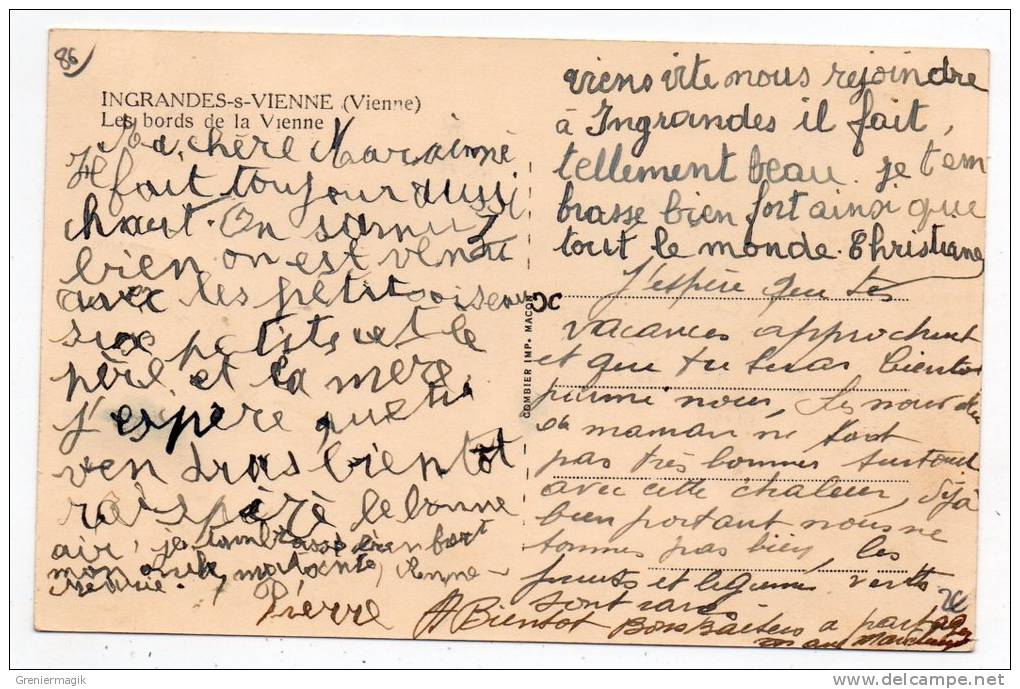 86
INGRANDES-s-VIENNE (Vienne)
Les bords de la Vienne
Ma chère
Il fait toujour aussi
chaut. On
bien on est venu
avec les petit oiseau
six petits et le
père et la mère.
J'espère que tu
vendras bientot
respirè le bonne
air, je bien fort
mon oncle,
Pierre
viens vite nous rejoindre
à Ingrandes il fait
tellement beau. je t'em-
brasse bien fort ainsi que
tout le monde. Christiane
J'espère que tes
vacances approchent
et que tu seras bientot
parmi nous, les
de maman ne sont
pas très bonnes surtout
avec cette chaleur, déjà
bien portant nous ne
sommes pas bien, les
fruits et legumes verts
sont rares
A Bientot Bons Baisers à partager
COMBIER IMP. MACON
© Greniermagik
www.delcampe.net